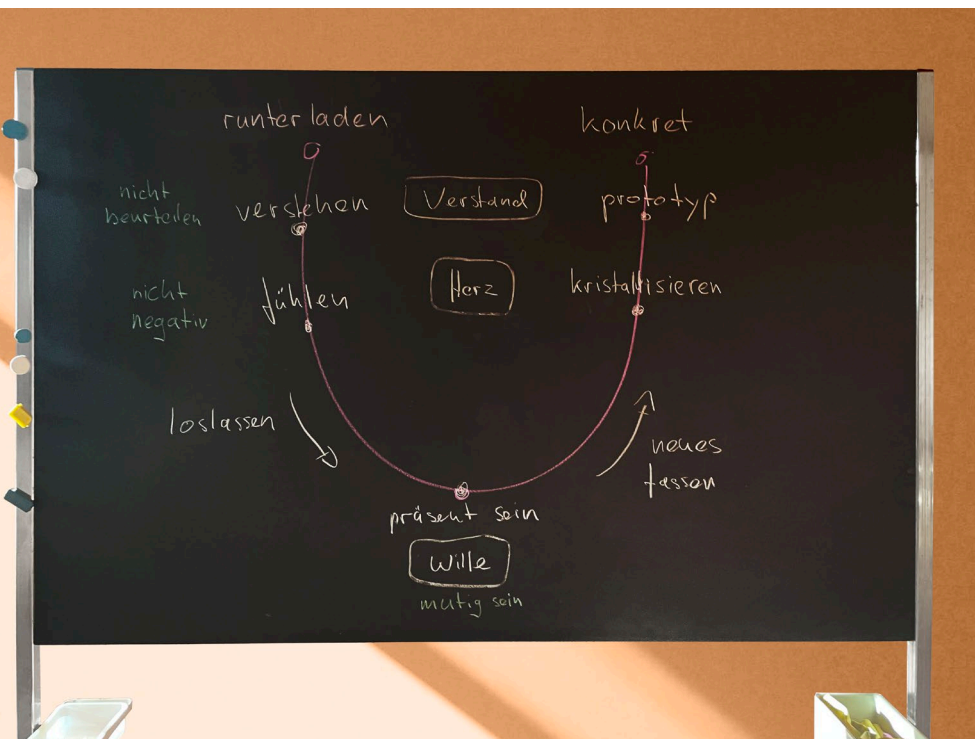 runterladen
konkret
nicht
beurteilen
verstehen
Verstand
prototyp
nicht
negativ
fühlen
Herz
kristallisieren
loslassen
neues
fassen
präsent sein
Wille
mutig sein